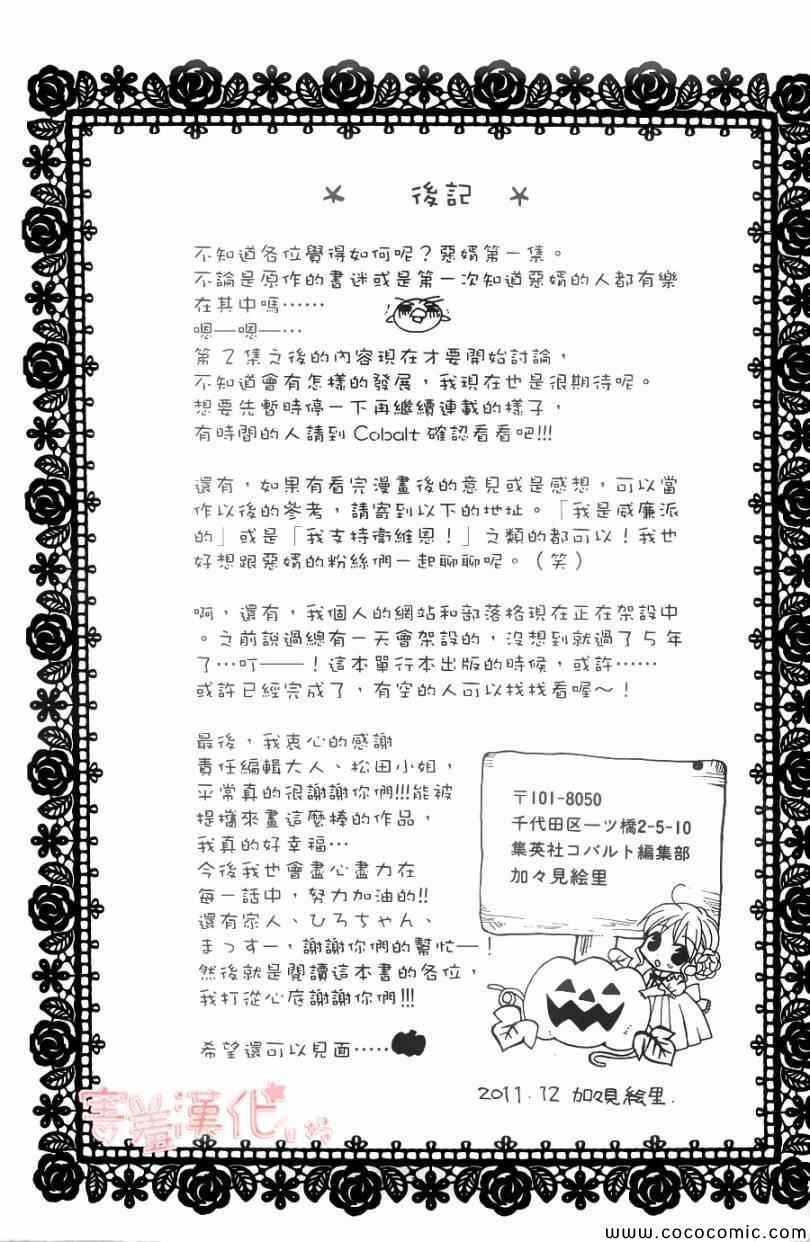 後記
不知道各位覺得如何呢？惡婿第一集。
不論是原作的書迷或是第一次知道惡婿的人都有樂
在其中嗎……
嗯—嗯—…
第２集之後的內容現在才要開始討論，
不知道會有怎樣的發展，我現在也是很期待呢。
想要先暫時停一下再繼續連載的樣子，
有時間的人請到 Cobalt 確認看看吧!!!
還有，如果有看完漫畫後的意見或是感想，可以當
作以後的參考，請寄到以下的地址。「我是威廉派
的」或是「我支持衛維恩！」之類的都可以！我也
好想跟惡婿的粉絲們一起聊聊呢。（笑）
啊，還有，我個人的網站和部落格現在正在架設中
。之前說過總有一天會架設的，沒想到就過了５年
了…叮——！這本單行本出版的時候，或許……
或許已經完成了，有空的人可以找找看喔～！
最後，我衷心的感謝
責任編輯大人、松田小姐，
平常真的很謝謝你們!!!能被
提攜來畫這麼棒的作品，
我真的好幸福…
今後我也會盡心盡力在
每一話中，努力加油的!!
還有家人、ひろちゃん、
まっすー，謝謝你們的幫忙—！
然後就是閱讀這本書的各位，
我打從心底謝謝你們!!!
希望還可以見面……
〒101-8050
千代田区一ツ橋2-5-10
集英社コバルト編集部
加々見絵里
2011.12 加々見絵里.
害羞漢化
www.cococomic.com